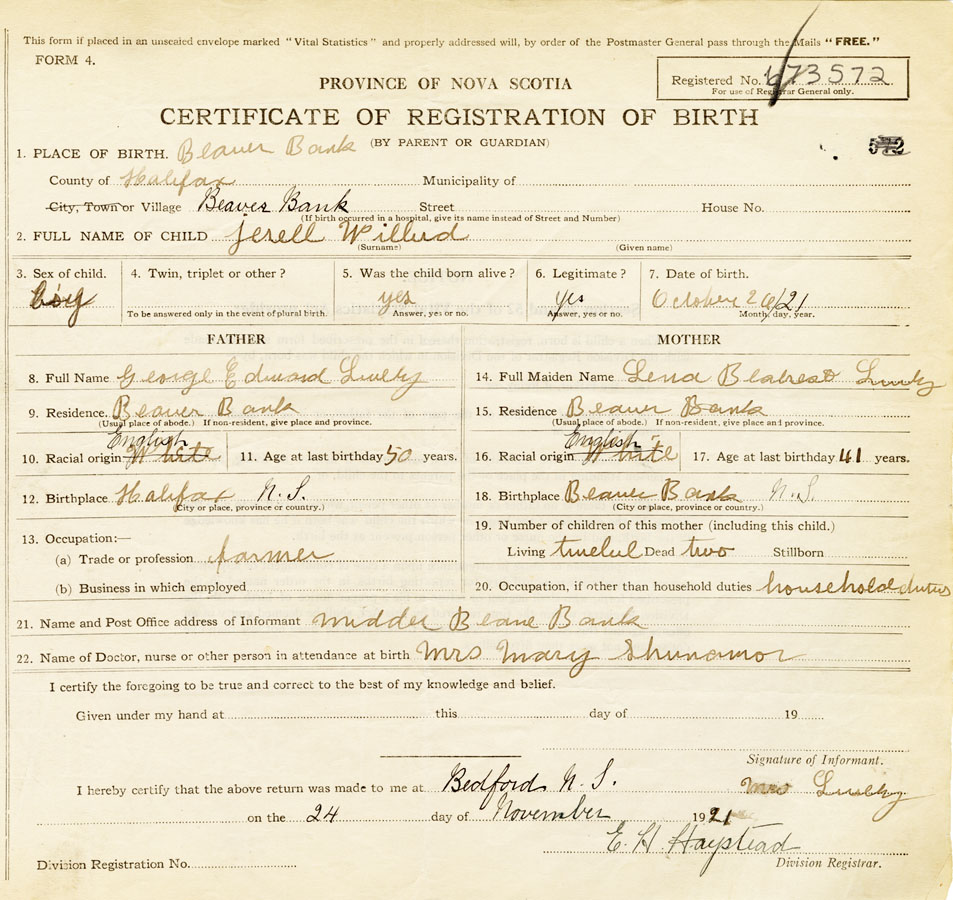 This form if placed in an unsealed envelope marked "Vital Statistics" and properly addressed will, by order of the Postmaster General pass through the Mails "FREE."
FORM 4.
PROVINCE OF NOVA SCOTIA
Registered No. 673572
For use of Registrar General only.
CERTIFICATE OF REGISTRATION OF BIRTH
(BY PARENT OR GUARDIAN)
572
1. PLACE OF BIRTH. Beaver Bank
County of Halifax Municipality of
City, Town or Village Beaver Bank Street House No.
(If birth occurred in a hospital, give its name instead of Street and Number)
2. FULL NAME OF CHILD jerell Willud
(Surname) (Given name)
3. Sex of child. 4. Twin, triplet or other? 5. Was the child born alive? 6. Legitimate? 7. Date of birth.
boy yes yes October 26/21
To be answered only in the event of plural birth. Answer, yes or no. Answer, yes or no. Month, day, year.
FATHER MOTHER
8. Full Name George Edward 14. Full Maiden Name Lena
9. Residence. Beaver Bank 15. Residence Beaver Bank
(Usual place of abode.) If non-resident, give place and province. (Usual place of abode.) If non-resident, give place and province.
English English
10. Racial origin White 11. Age at last birthday 50 years. 16. Racial origin White 17. Age at last birthday 41 years.
12. Birthplace Halifax N.S. 18. Birthplace Beaver Bank N.S.
(City or place, province or country.) (City or place, province or country.)
13. Occupation:— 19. Number of children of this mother (including this child.)
(a) Trade or profession farmer Living Dead two Stillborn
(b) Business in which employed 20. Occupation, if other than household duties household duties
21. Name and Post Office address of Informant Bank
22. Name of Doctor, nurse or other person in attendance at birth Mrs Mary
I certify the foregoing to be true and correct to the best of my knowledge and belief.
Given under my hand at this day of 19
Signature of Informant.
I hereby certify that the above return was made to me at Bedford N.S. Mrs
on the 24 day of November 1921
E. H. Haystead
Division Registration No. Division Registrar.